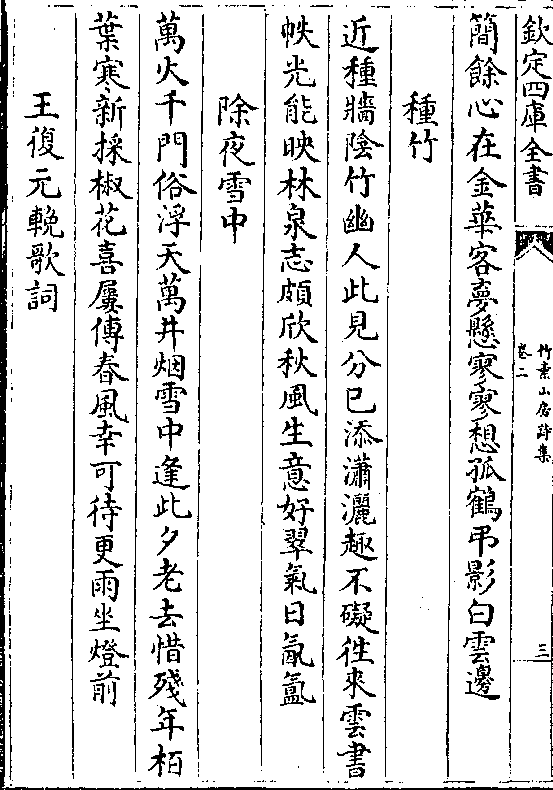 欽定四庫全書
竹素山房詩集
卷二
三
簡餘心在金華客夢懸寥寥想孤鶴弔影白雲邊
種竹
近種牆陰竹幽人此見分已添瀟灑趣不礙徃來雲書
帙光能映林泉志頗欣秋風生意好翠氣日氤氳
除夜雪中
萬火千門俗浮天萬井烟雪中逢此夕老去惜殘年栢
葉寒新採椒花喜屢傳春風幸可待更雨坐燈前
王復元輓歌詞